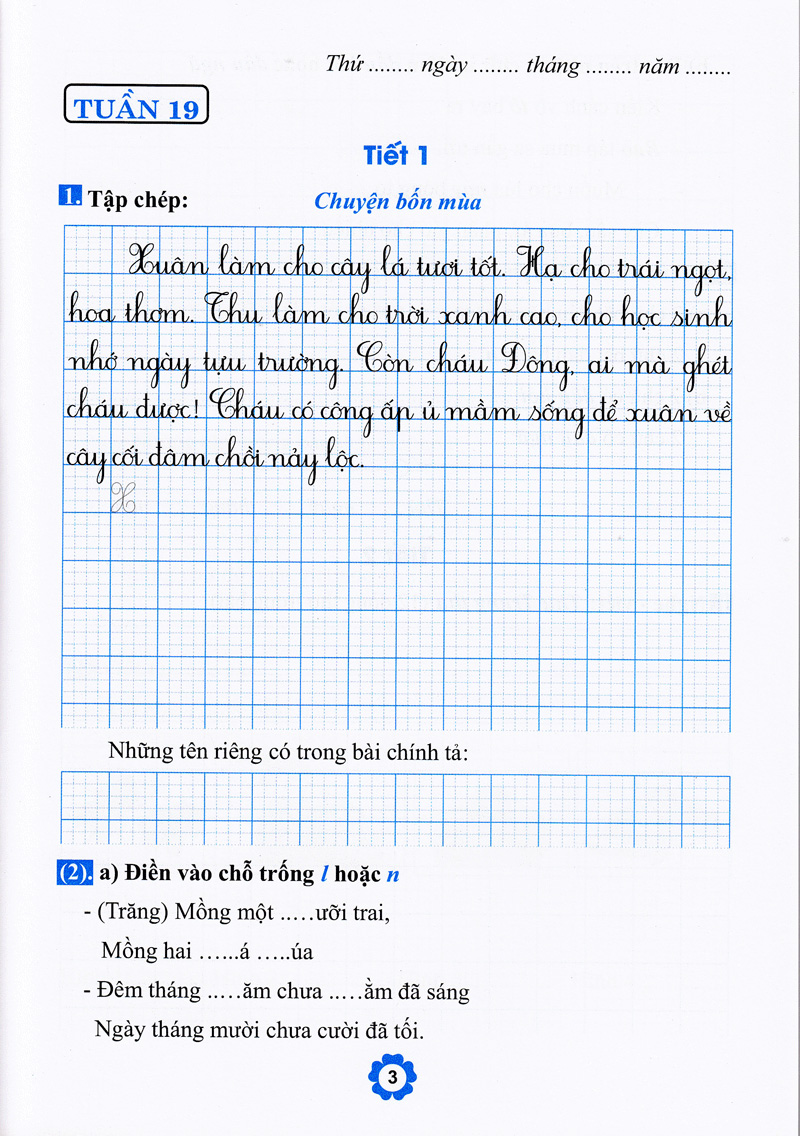 Thứ ........ ngày ........ tháng ........ năm ........
TUẦN 19
Tiết 1
1. Tập chép: Chuyện bốn mùa
Xuân làm cho cây lá tươi tốt. Hạ cho trái ngọt,
hoa thơm. Thu làm cho trời xanh cao, cho học sinh
nhớ ngày tựu trường. Còn cháu Đông, ai mà ghét
cháu được! Cháu có công ấp ủ mầm sống để xuân về
cây cối đâm chồi nảy lộc.
X
Những tên riêng có trong bài chính tả:
(2). a) Điền vào chỗ trống l hoặc n
- (Trăng) Mồng một ......ưỡi trai,
Mồng hai ......á .....úa
- Đêm tháng ......ăm chưa ......ằm đã sáng
Ngày tháng mười chưa cười đã tối.
3